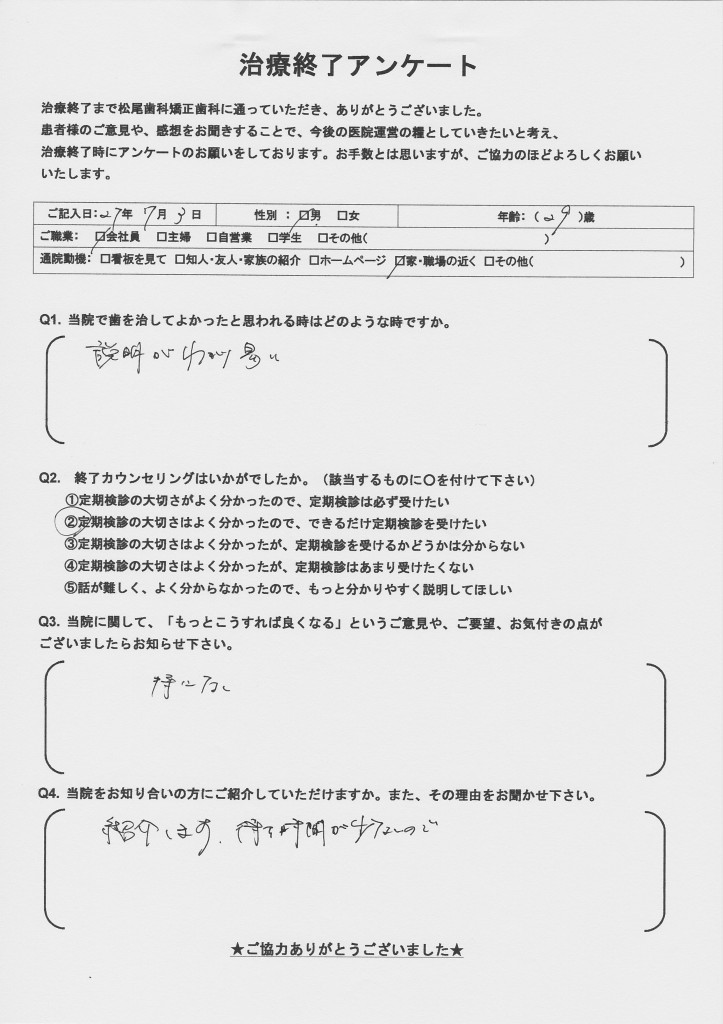 治療終了アンケート
治療終了まで松尾歯科矯正歯科に通っていただき、ありがとうございました。
患者様のご意見や、感想をお聞きすることで、今後の医院運営の糧としていきたいと考え、
治療終了時にアンケートのお願いをしております。お手数とは思いますが、ご協力のほどよろしくお願い
いたします。
ご記入日:27年 7月 3日 性別 : ☑男 □女 年齢:( 29 )歳
ご職業: ☑会社員 □主婦 □自営業 □学生 □その他( )
通院動機: □看板を見て □知人・友人・家族の紹介 □ホームページ ☑家・職場の近く □その他( )
Q1. 当院で歯を治してよかったと思われる時はどのような時ですか。
説明がわかり易い
Q2. 終了カウンセリングはいかがでしたか。（該当するものに〇を付けて下さい）
①定期検診の大切さがよく分かったので、定期検診は必ず受けたい
②定期検診の大切さはよく分かったので、できるだけ定期検診を受けたい
③定期検診の大切さはよく分かったが、定期検診を受けるかどうかは分からない
④定期検診の大切さはよく分かったが、定期検診はあまり受けたくない
⑤話が難しく、よく分からなかったので、もっと分かりやすく説明してほしい
Q3. 当院に関して、「もっとこうすれば良くなる」というご意見や、ご要望、お気付きの点が
ございましたらお知らせ下さい。
特になし
Q4. 当院をお知り合いの方にご紹介していただけますか。また、その理由をお聞かせ下さい。
紹介します、待ち時間が少ないので
★ご協力ありがとうございました★